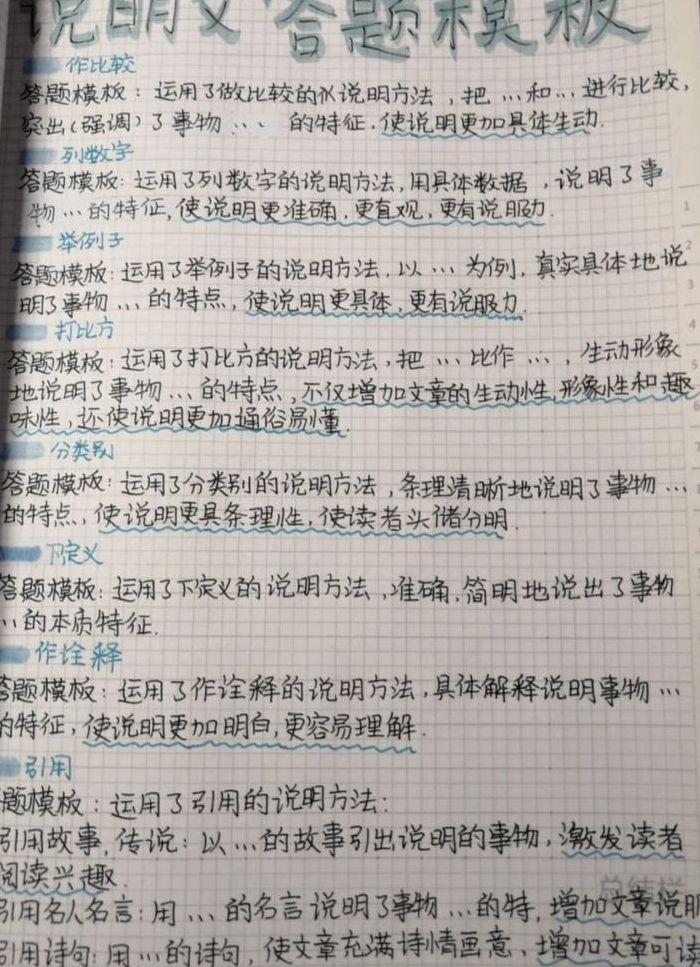 说明文答题模板
作比较
答题模板：运用了做比较的的说明方法，把…和…进行比较，
突出（强调）了事物…的特征，使说明更加具体生动.
列数字
答题模板：运用了列数字的说明方法，用具体数据，说明了事
物…的特征，使说明更准确，更直观，更有说服力.
举例子
答题模板：运用了举例子的说明方法，以…为例，真实具体地说
明了事物…的特点，使说明更具体，更有说服力.
打比方
答题模板：运用了打比方的说明方法，把…比作…，生动形象
地说明了事物…的特点，不仅增加文章的生动性，形象性和趣
味性，还使说明更加通俗易懂.
分类别
答题模板：运用了分类别的说明方法，条理清晰地说明了事物…
的特点，使说明更具条理性，使读者头储分明.
下定义
答题模板：运用了下定义的说明方法，准确，简明地说出了事物
…的本质特征.
作诠释
答题模板：运用了作诠释的说明方法，具体解释说明事物…
的特征，使说明更加明白，更容易理解.
引用
题模板：运用了引用的说明方法：
引用故事，传说：以…的故事引出说明的事物，激发读者
阅读兴趣.
引用名人名言：用…的名言说明了事物…的特，增加文章说服
引用诗句：用…的诗句，使文章充满诗情画意，增加文章可读
1
2
3
4
5
6
7